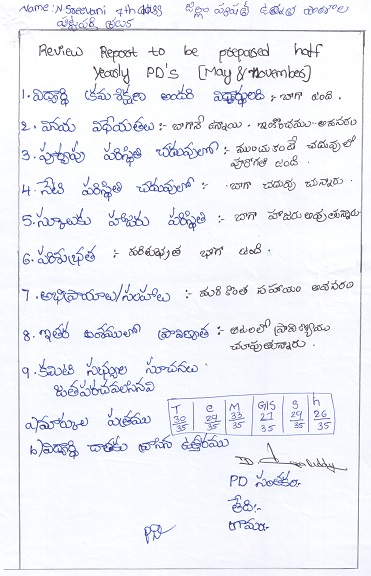 Name: N Sreevani 7th class జిల్లా పరిషత్ ఉన్నత పాఠశాల
Review Report to be prepared half
Yearly PD's [May & November]
1. విద్యార్థి క్రమశిక్షణ అందరి విద్యార్థులది :- బాగా ఉంది.
2. వినయ విధేయతలు :- బాగానే ఉన్నాయి. ఇంకొంచము అవసరం
3. పూర్వపు పరిస్థితి చదువులో :- ముందుకంటే చదువులో
పురోగతి ఉంది.
4. నేటి పరిస్థితి చదువులో :- బాగా చదువు చున్నారు.
5. స్కూలుకు హాజరు పరిస్థితి :- బాగా హాజరు అవుతున్నారు
6. పరిశుభ్రత :- పరిశుభ్రత బాగా ఉంది.
7. అభిప్రాయాలు/సలహాలు :- మరికొంత సహాయం అవసరం
8. ఇతర అంశములలో ప్రావీణ్యత :- ఆటలలో ప్రావిణ్యాయం
చూపుతున్నారు.
9. కమిటి సభ్యుల సూచనలు
జతపరచవలసినవి
a) మార్కుల పత్రము T 30/35 E 29/35 M 33/35 G/S 21/35 S 29/35 h 26/35
b) విద్యార్థి చేతకు వ్రాసిన ఉత్తరము
PD సంతకం:-
తేది:-
గ్రామం:-